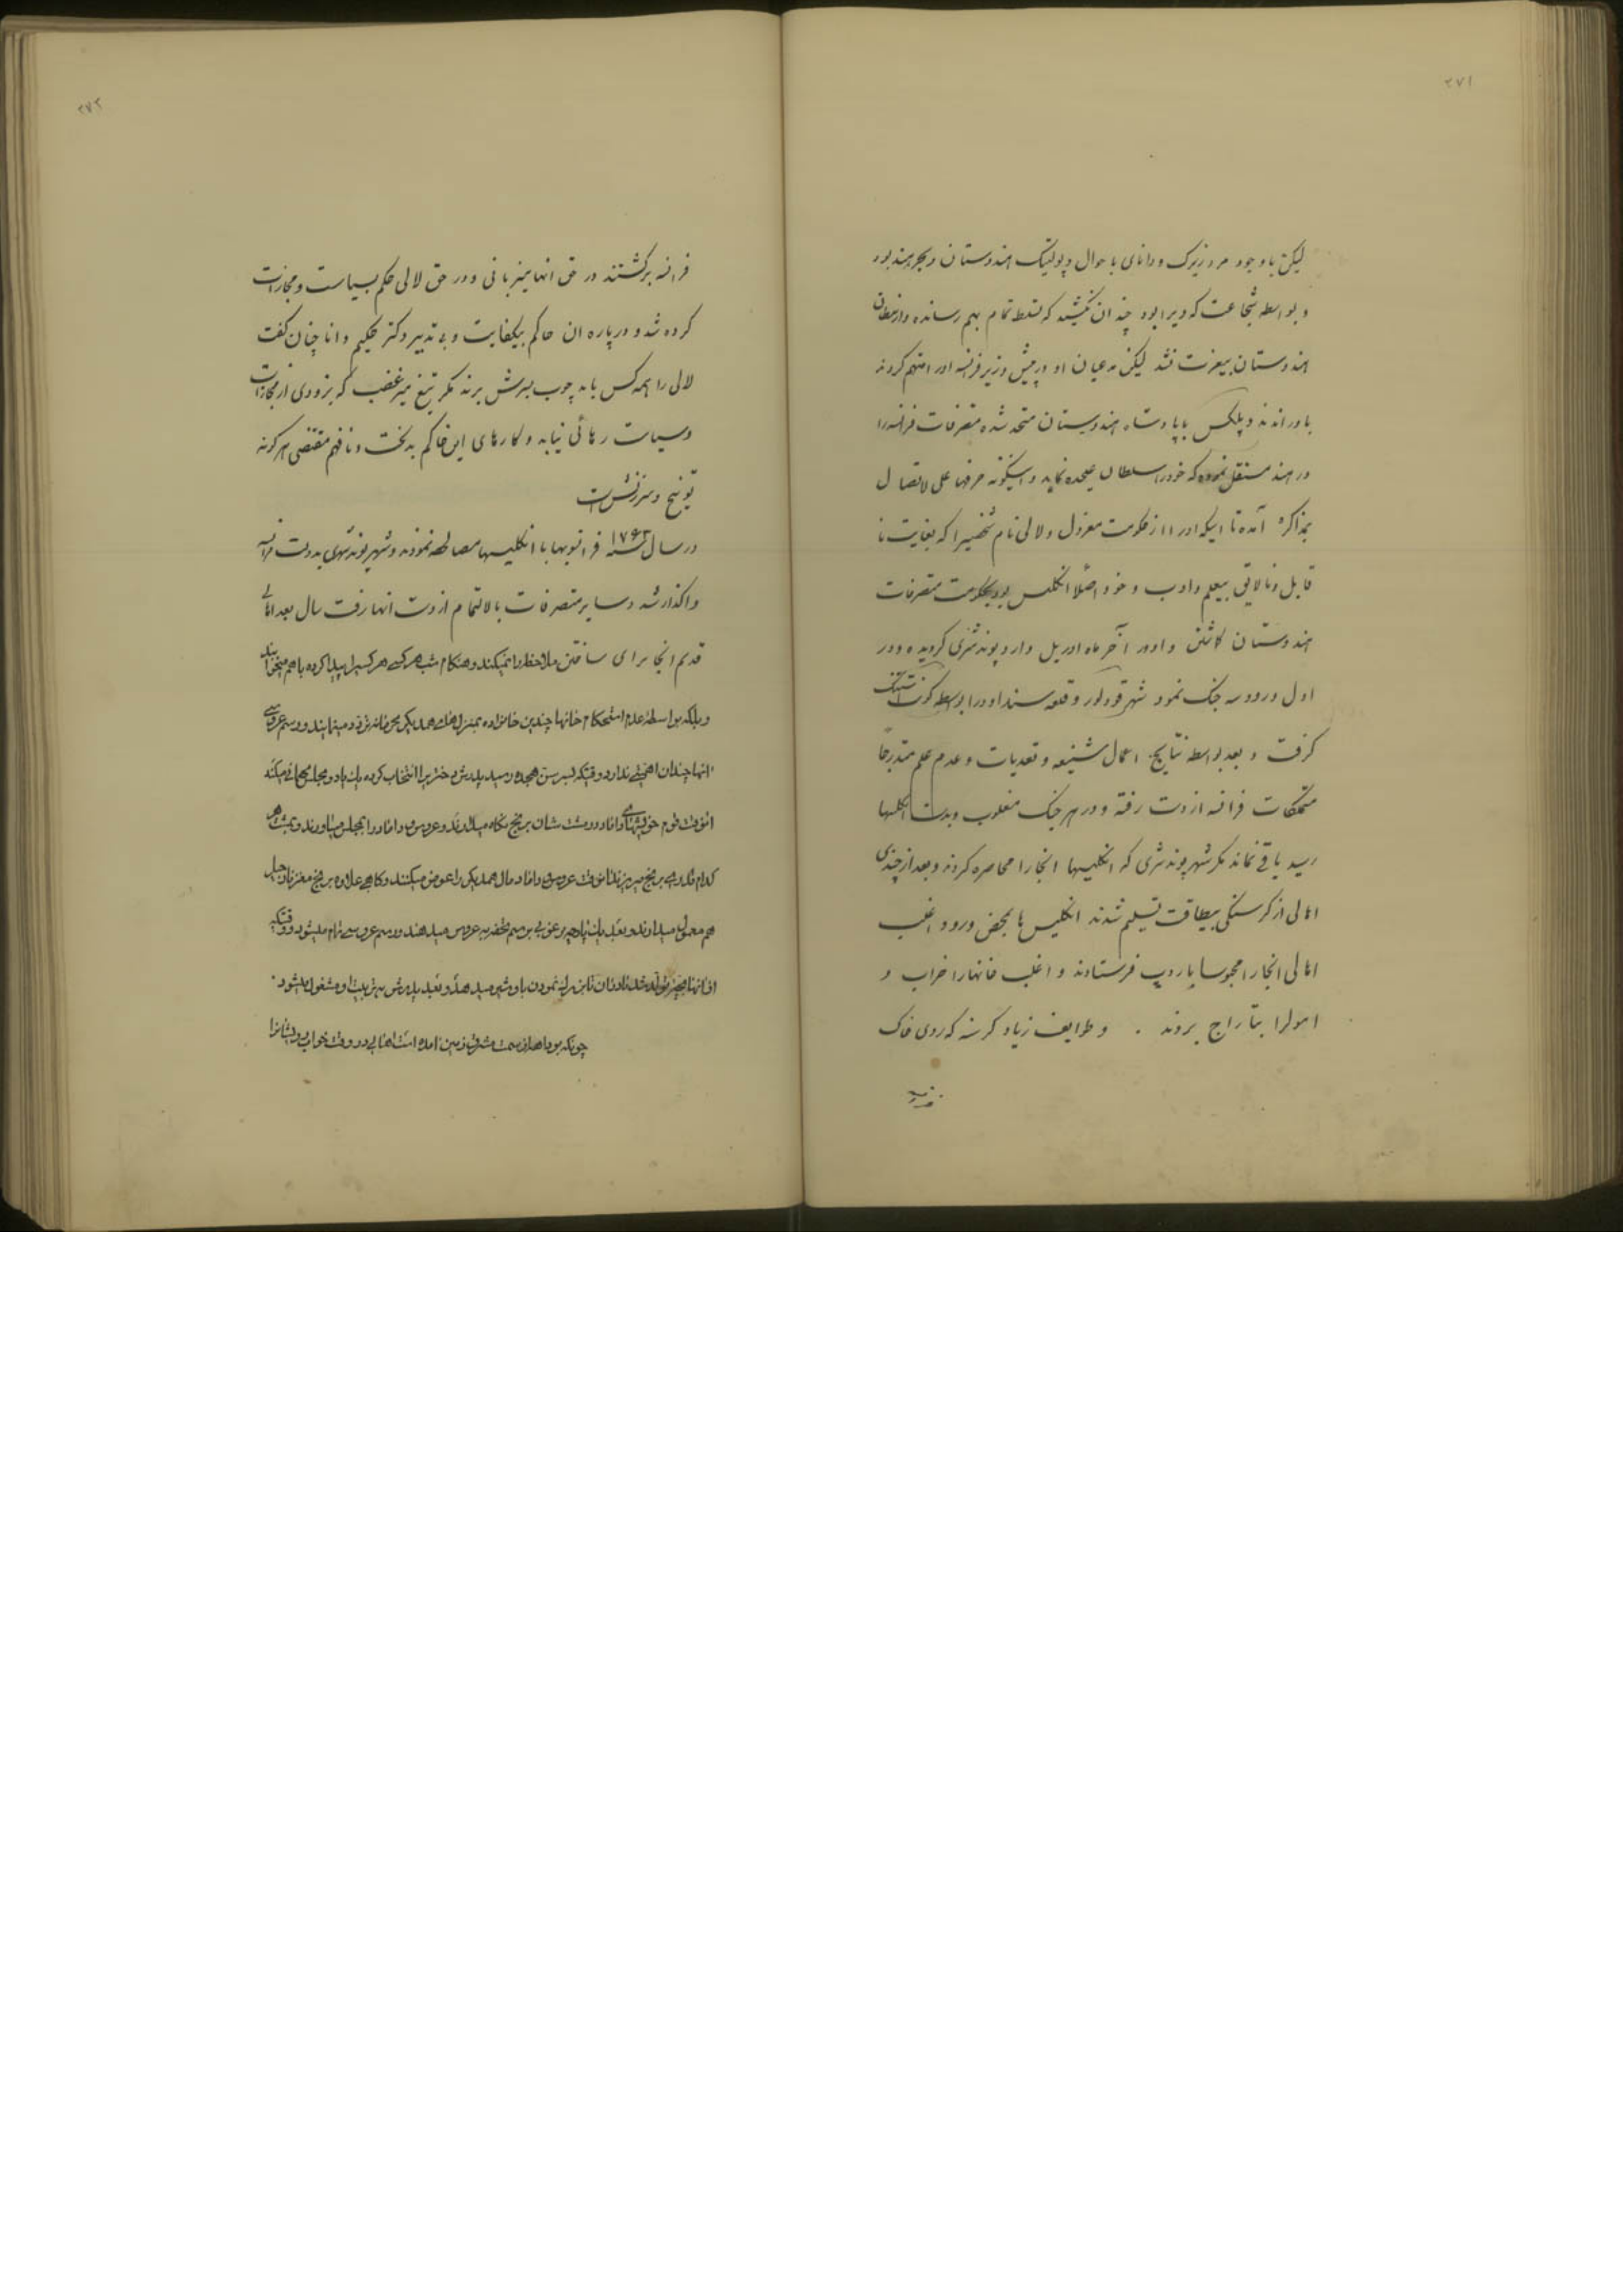 ۲۷۱
لیکن با وجود مرد زیرک و دانای با حوال و پولتیک هندوستان و بحر هند بود
و بواسطه شجاعت که ویرا بود چندان نکشید که تسلط تمام بهم رسانده و از سلطان
هندوستان بیعزت نشد لیکن مدعیان او در پیش وزیر فرانسه اورا متهم کردند
باوراندند دوپلکس با پادشاه هندوستان متحد شده متصرفات فرانسه را
در هند مستقل نموده که خود را سلطان علیحده نماید و اینگونه حرفها علی الاتصال
بمذاکره آمده تا اینکه اورا از حکومت معزول و لالی نام شخصیرا که بغایت نا
قابل و نالایق بیعلم و ادب و خود اصلا انگلیس بود بحکومت متصرفات
هندوستان گماشتن و او در آخر ماه اوریل وارد پوندشری گردیده و در
اول ورود سه جنگ نمود شهر قودلور و قلعه سنداودرا بواسطه
گرفت و بعد بواسطه نتایج اعمال شنیعه و تعدیات و عدم علم متدرجاً
متملکات فرانسه از دست رفته و در هر جنگ مغلوب و بدست انگلیسها
رسید باقی نماند مگر شهر پوندشری که انگلیسها انجا را محاصره کردند و بعد از چندی
اهالی از گرسنگی بیطاقت تسلیم شدند انگلیس ها بمحض ورود اغلب
اهالی انجا را محبوسا باروپ فرستادند و اغلب خانها را خراب و
اموالرا بتاراج بردند . و طوایف زیاد گرسنه که روی خاک
۲۷۲
فرانسه برگشتند در حق انها میزبانی و در حق لالی حکم سیاست و مجازات
کرده شد و در باره ان حاکم بیکفایت و بی تدبیر دکتر حکیم و دانا چنان گفت
لالی را همه کس باید چوب بسرش برند مگر تیغ میرغضب که بزودی از مجازات
و سیاست رهائی نیابد و کارهای این حاکم بدبخت و نافهم مقتضی هر گونه
توبیخ و سرزنش است
در سال ۱۷۶۳ فرانسویها با انگلیسها مصالحه نمودند و شهر پوندشری بدولت فرانسه
واگذار شد و سایر متصرفات بالتمام از دست انها رفت سال بعد اهالی
قدیم انجا برای ساختن ملاحظه را نمیکنند و هنگام شب هر کس هر کسیرا پیدا کرده باهم میخوابند
و بلکه بواسطه عدم استحکام خانها چندین خانواده بمنزل های همدیگر محرمانه تردد مینمایند و رسم عروسی
انها چندان اهمیتی ندارد وقتیکه پسر بسن هجده رسید پدرش دختریرا انتخاب کرده یک باد و مجلس مهمانی میکند
انوقت قوم خویشهای داماد در مشت شان برنج نگاه میدارند و عروس و داماد را بمجلس میاورند و بمشت هر
کدام قدری برنج میریزند انوقت عروس و داماد مال همدیگر را عوض میکنند و گاهی علاوه برنج مغز نارجیل
هم معمول میدارند و بعد یک پارچه مرغوبی برسم تحفه به عروس میدهند و رسم عروسی تمام میشود و وقتیکه
از انها بچه تولد شد مادر ان تا بزرگ نمودن باو شیر میدهد و بعد پدرش به تربیت او مشغول میشود .
چونکه بودا هماز سمت مشرق زمین امده است اهالی در وقت خواب